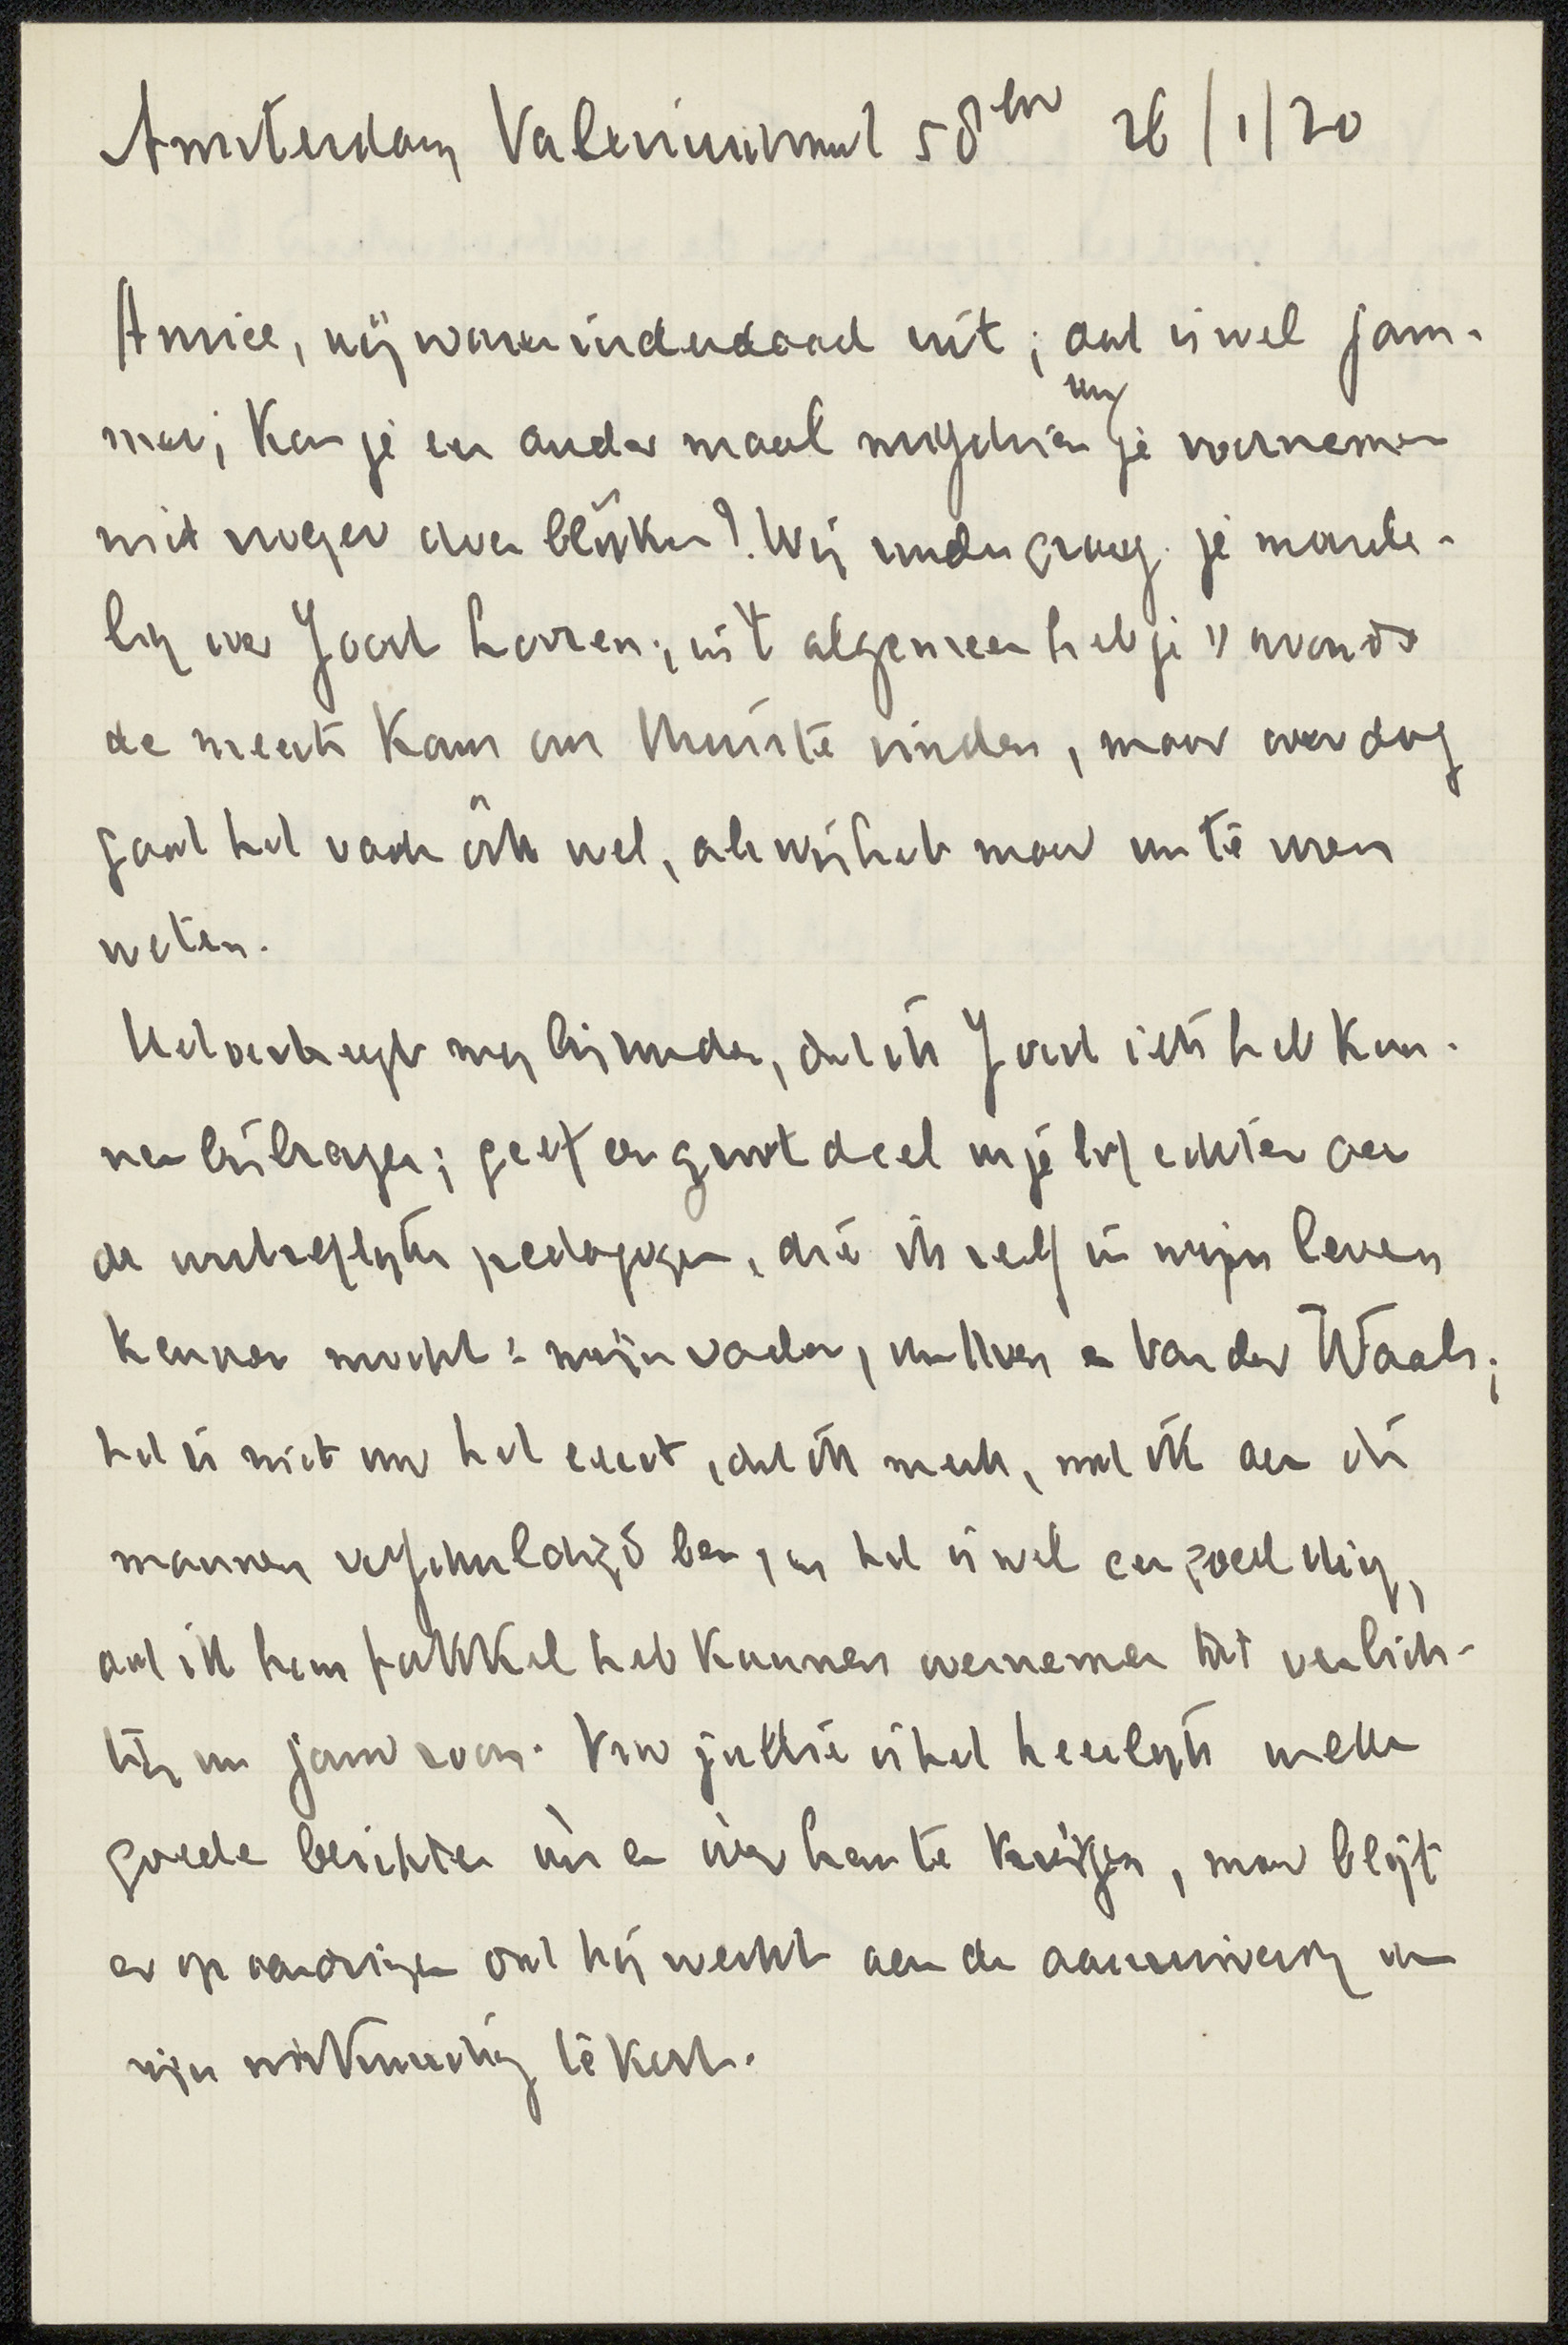 Amsterdam Valeriusstraat 58hs 26/1/20
Amice, wij waren inderdaad uit; dat is wel jam-
mer; kan je een ander maal misschien van je voornemen
iets vroeger doen blijken? Wij zouden graag je monde-
ling over Joost hooren; in 't algemeen heb je 's avonds
de meeste kans om thuis te vinden, maar overdag
gaat het vaak ook wel, als wij het maar van te voren
weten.
Het verheugt mij bijzonder, dat ik Joost iets heb kun-
nen bijbrengen; geef een groot deel van je lof echter aan
de voortreffelijke pedagogen, die ik zelf in mijn leven
kennen mocht: mijn vader, van 't Hoff en Van der Waals;
het is niet voor het eerst, dat ik merk, wat ik aan die
mannen verschuldigd ben, en het is wel een goed ding,
dat ik hun fakkel heb kunnen overnemen tot verlich-
ting van jouw zoon. Voor jullie is het heerlijk zulke
goede berichten van en over hem te krijgen, maar blijf
er op aandringen dat hij werkt aan de aanzuivering van
zijn wiskundig tekort.